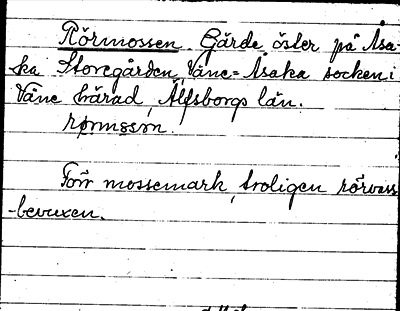 Rörmossen. Gärde öster på Åsa-
ka Storegården, Väne-Åsaka socken i
Väne härad, Älfsborgs län.
rørmosøn.
Förr mossemark, troligen rörvass
-bevuxen.